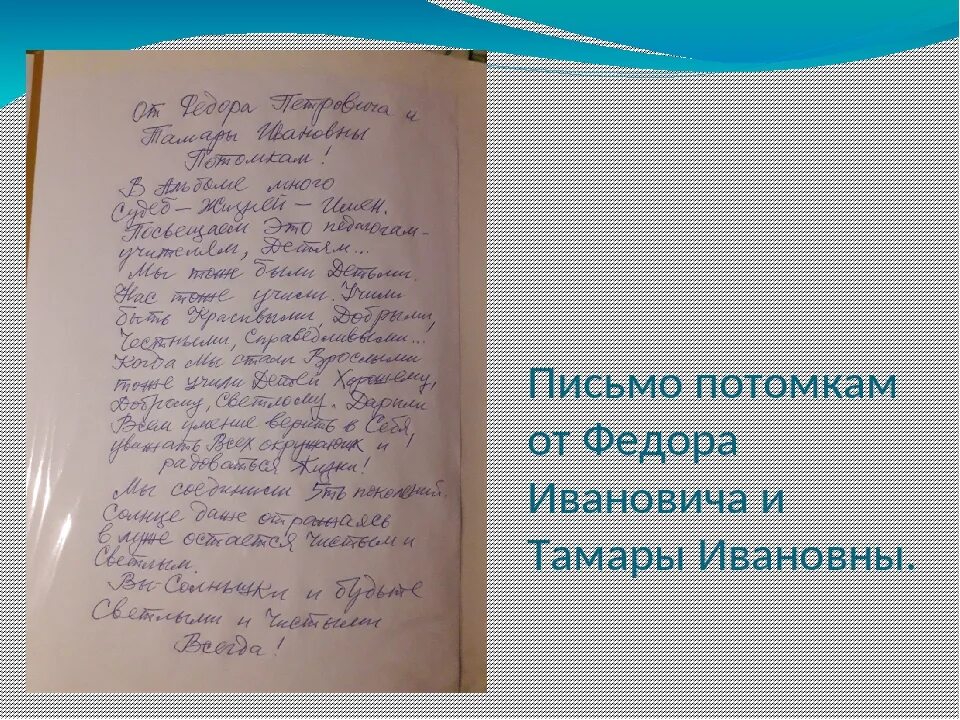 От Федора Петровича и
Тамары Ивановны
Потомкам!
В Альбоме много
Судеб – Жизней – Имен.
Посвещаем Это педагогам-
учителям, Детям...
Мы тоже были Детьми.
Нас тоже учили. Учили
быть Красивыми, Добрыми,
Честными, Справедливыми...
Когда Мы стали Врослыми
тоже учили Детей Хорошему,
Доброму, Светлому. Дарили
Всем умение верить в Себя,
уважать Всех окружающих и
радоваться Жизни!
Мы соединили 5ть поколений.
Солнце даже отражаясь
в луже остается Чистым и
Светлым.
Вы-Солнышки и будьте
Светлыми и Чистыми
Всегда!
Письмо потомкам
от Федора
Ивановича и
Тамары Ивановны.